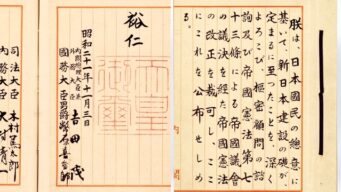 朕は、日本國民の總意に
基いて、新日本建設の礎が、
定まるに至つたことを、深く
よろこび、樞密顧問の諮
詢及び帝國憲法第七
十三條による帝國議會
の議決を経た帝國憲法
の改正を裁可し、ここ
にこれを公布せしめ
る。
裕仁
天皇
御璽
昭和二十一年十一月三日
内閣總理大臣兼
外務大臣 吉田茂
國務大臣 男爵 幣原喜重郎
司法大臣 木村篤太郎
内務大臣 大村清一